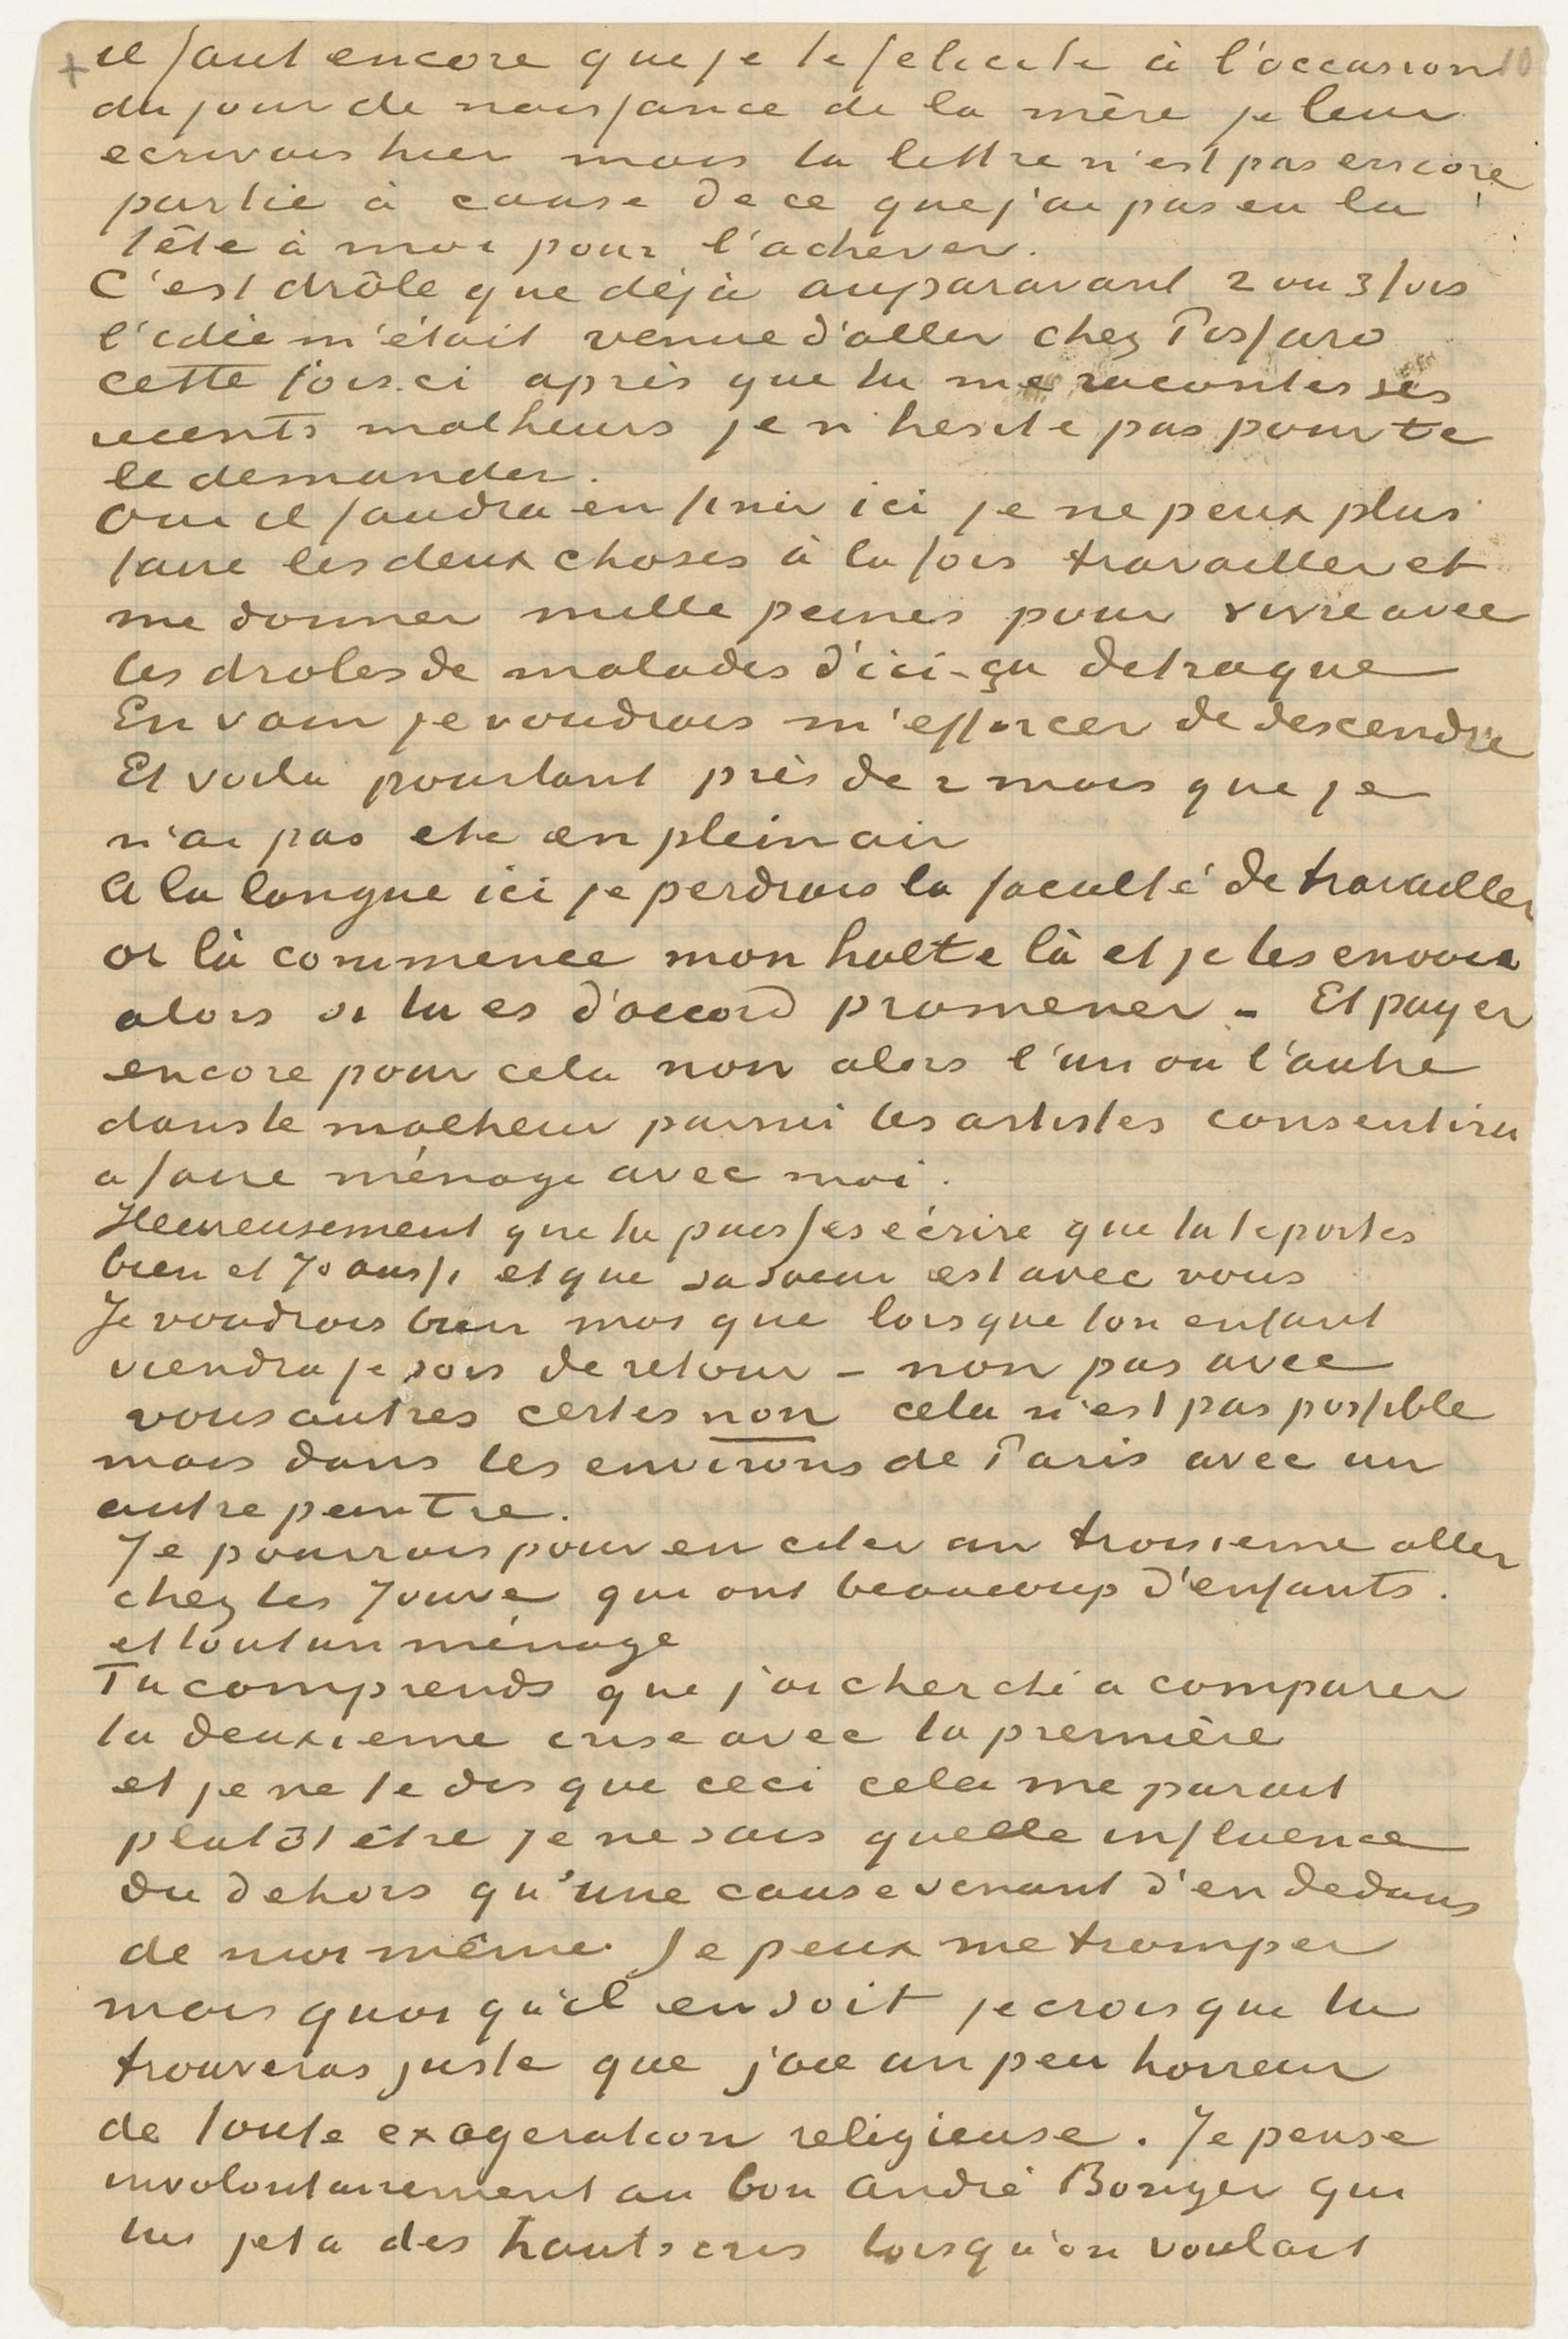 + il faut encore que je te felicite à l'occasion 10
du jour de naissance de la mère je leur
ecrivais hier mais la lettre n'est pas encore
partie à cause de ce que j'ai pas eu la
tête à moi pour l'achever.
C'est drôle que déjà auparavant 2 ou 3 fois
l'idée m'était venue d'aller chez Pissaro
cette fois ci après que tu me racontes ses
recents malheurs je n'hesite pas pour te
le demander.
Oui il faudra en finir ici je ne peux plus
faire les deux choses à la fois travailler et
me donner mille peines pour vivre avec
les droles de malades d'ici – ça detraque
En vain je voudrais m'efforcer de descendre
Et voila pourtant près de 2 mois que je
n'ai pas eté en plein air
A la longue ici je perdrais la faculté de travailler
or là commence mon halte là et je les envoie
alors si tu es d'accord promener – Et payer
encore pour cela non alors l'un ou l'autre
dans le malheur parmi les artistes consentira
a faire ménage avec moi.
Heureusement que tu puisses écrire que tu te portes
bien et Jo aussi et que sa soeur est avec vous
Je voudrais bien moi que lorsque ton enfant
viendra je sois de retour – non pas avec
vous autres certes non cela n'est pas possible
mais dans les environs de Paris avec un
autre peintre.
Je pourrais pour en citer un troisieme aller
chez les Jouve qui ont beaucoup d'enfants.
et tout un ménage
Tu comprends que j'ai cherché a comparer
la deuxieme crise avec la première
et je ne te dis que ceci cela me parait
plutôt être je ne sais quelle influence
du dehors qu'une cause venant d'en dedans
de moi même. Je peux me tromper
mais quoi qu'il en soit je crois que tu
trouveras juste que j'aie un peu horreur
de toute exageration religieuse. Je pense
involontairement au bon André Bonger qui
lui jeta des hauts cris lorsqu'on voulait